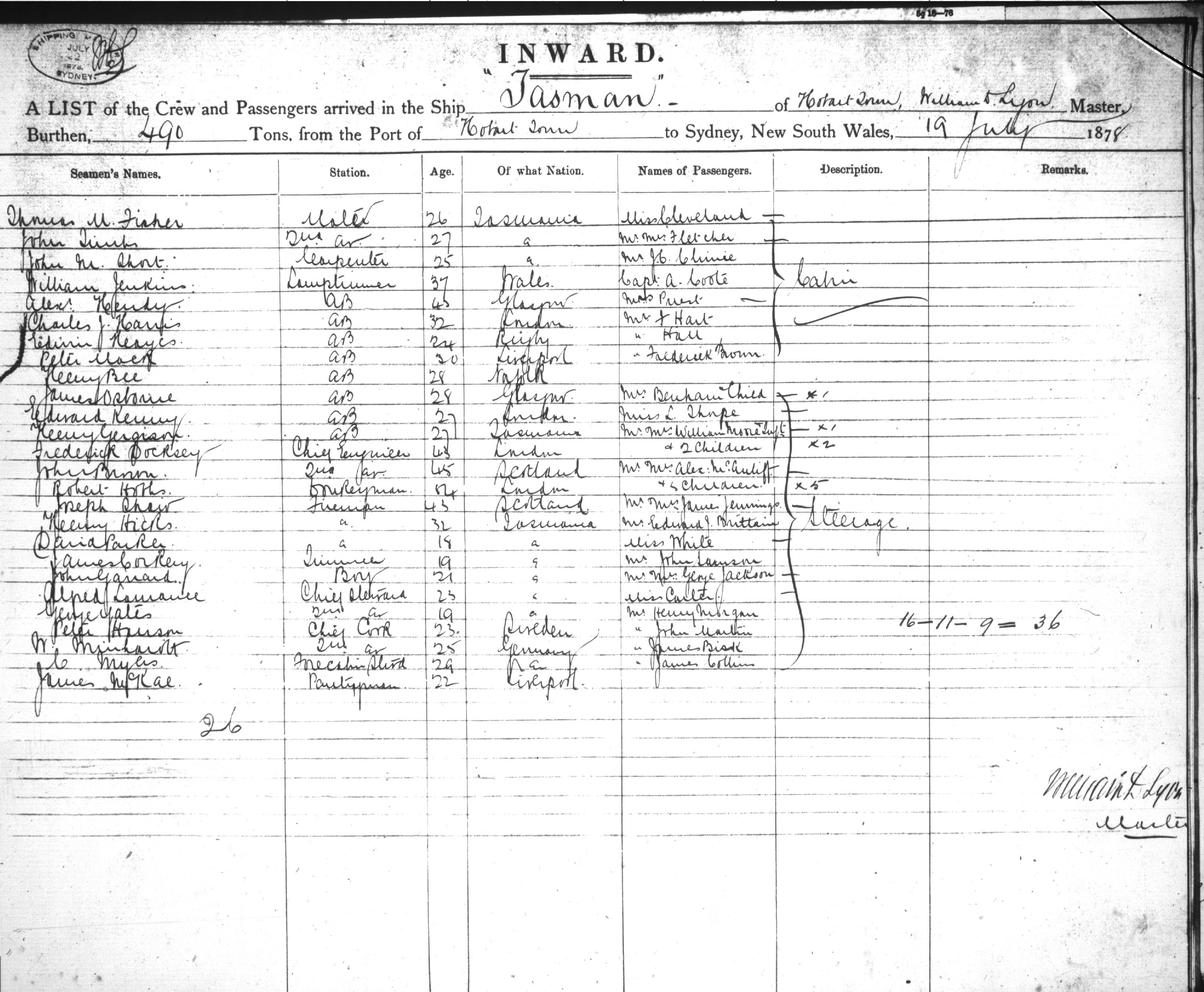 SHIPPING
JULY 22 1878
SYDNEY
INWARD.
A LIST of the Crew and Passengers arrived in the Ship "Tasman" of Hobart Town, William D. Lyon Master,
Burthen, 490 Tons. from the Port of Hobart Town to Sydney, New South Wales, 19 July 1878
Seamen's Names. Station. Age. Of what Nation. Names of Passengers. Description. Remarks.
Thomas M. Fisher Mate 26 Tasmania Miss Cleveland
John 2nd do 27 " Mr Mrs Fletcher
John M. Short Carpenter 25 " Mr
William Jenkins Lamptrimmer 37 Wales Capt. A. Coote Cabin
Alexr. Hendy AB 45 Glasgow Priest
Charles J. Harris AB 32 London Mr Hart
Edwin Heayes AB 24 Rugby " Hall
Peter Mack AB 30 Liverpool " Frederick Brown
Henry Bee AB 28
James Osborne AB 28 Glasgow Mrs Benham Child x1
Edward Kenny AB 27 London Miss L. Thorpe
Henry Ferguson AB 27 Tasmania Mr Mrs William Moore x1
Frederick Docksey Chief Engineer 43 London & 2 Children x2
John Brown 2nd do 45 Scotland Mr Mrs Alex. McAuliff
Robert Hobbs Donkeyman 54 London & 5 Children x5
Joseph Shaw Fireman 43 Scotland Mr Mrs James Jennings
Henry Hicks " 32 Tasmania Mr Edward J. Brittain Steerage
David Parker " 18 " Miss White
James Corkery Trimmer 19 " Mr John
John Garrard Boy 21 " Mr Mrs George Jackson
Alfred Lamance Chief Steward 23 " Miss Carter
George Yates 2nd do 19 " Mr Henry Morgan
Peter Hanson Chief Cook 23 Sweden " John Martin 16-11-9=36
W. Meinhardt 2nd do 25 Germany " James Bisk
C. Myers Forecabin Stwd 29 do " James Collins
James McKae Pantryman 22 Liverpool
26
William D Lyon
Master